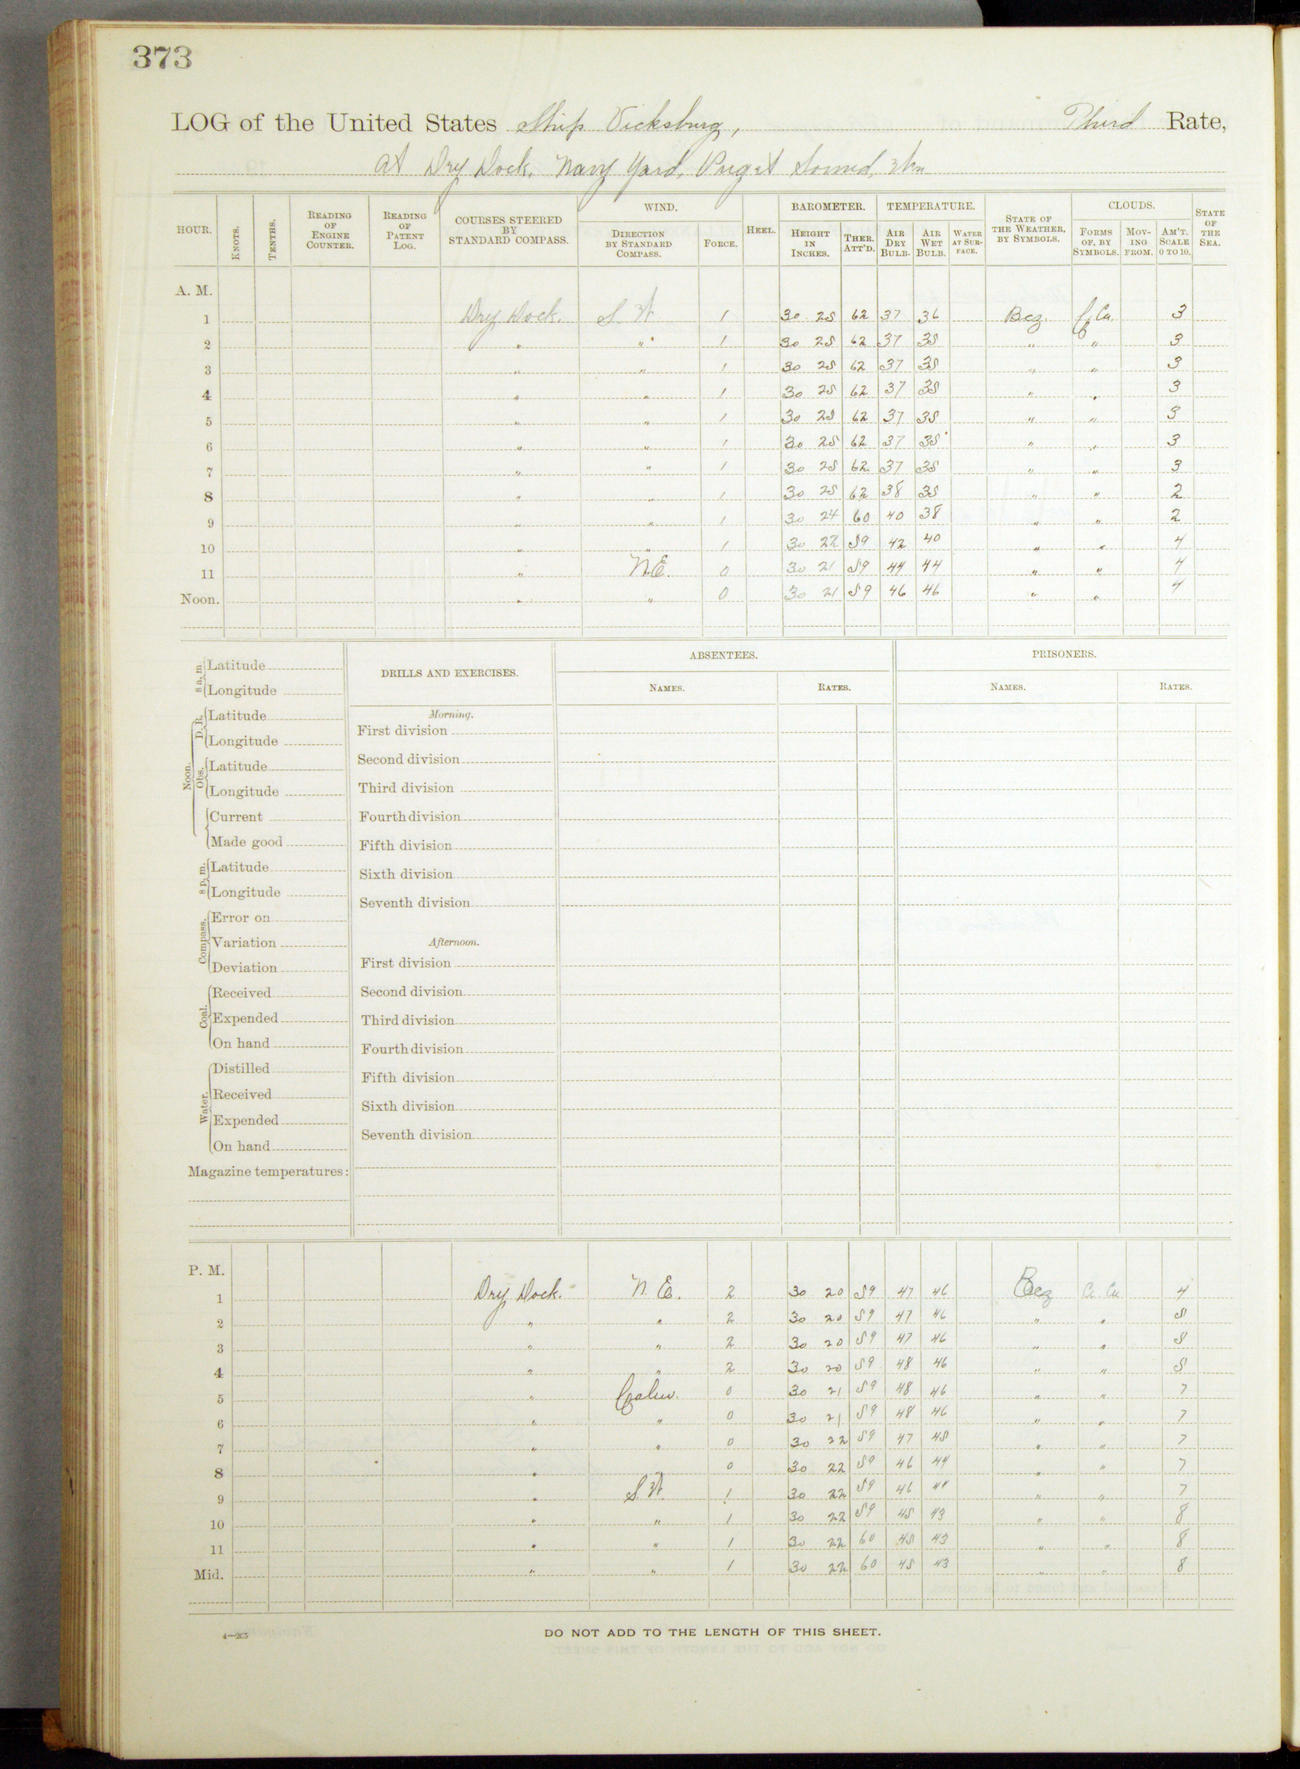 373
LOG of the United States Ship Vicksburg, Third Rate,
At Dry Dock, Navy Yard, Puget Sound, Wn
HOUR. KNOTS. TENTHS. READING OF ENGINE COUNTER. READING OF PATENT LOG. COURSES STEERED BY STANDARD COMPASS. WIND. DIRECTION BY STANDARD COMPASS. FORCE. HEEL. BAROMETER. HEIGHT IN INCHES. THER. ATT'D. TEMPERATURE. AIR DRY BULB. AIR WET BULB. WATER AT SURFACE. STATE OF THE WEATHER, BY SYMBOLS. CLOUDS. FORMS OF, BY SYMBOLS. MOVING FROM. AM'T. SCALE 0 TO 10. STATE OF THE SEA.
A. M.
1 Dry Dock. S. W. 1 30 25 62 37 36 Bcz. C. Cu. 3
2 " " 1 30 25 62 37 35 " " 3
3 " " 1 30 25 62 37 35 " " 3
4 " " 1 30 25 62 37 35 " " 3
5 " " 1 30 25 62 37 35 " " 3
6 " " 1 30 25 62 37 35 " " 3
7 " " 1 30 25 62 37 35 " " 3
8 " " 1 30 25 62 38 35 " " 2
9 " " 1 30 24 60 40 38 " " 2
10 " " 1 30 22 59 42 40 " " 4
11 " N.E. 0 30 21 59 44 44 " " 4
Noon. " " 0 30 21 59 46 46 " " 4
8 a. m. Latitude
Longitude
Noon. D. R. Latitude
Longitude
Obs. Latitude
Longitude
Current
Made good
8 p. m. Latitude
Longitude
Compass. Error on
Variation
Deviation
Coal. Received
Expended
On hand
Water. Distilled
Received
Expended
On hand
Magazine temperatures:
DRILLS AND EXERCISES.
Morning.
First division
Second division
Third division
Fourth division
Fifth division
Sixth division
Seventh division
Afternoon.
First division
Second division
Third division
Fourth division
Fifth division
Sixth division
Seventh division
ABSENTEES.
NAMES. RATES.
PRISONERS.
NAMES. RATES.
P. M.
1 Dry Dock. N. E. 2 30 20 59 47 46 Bcz Ci. Cu 4
2 " " 2 30 20 59 47 46 " " 5
3 " " 2 30 20 59 47 46 " " 5
4 " " 2 30 20 59 48 46 " " 5
5 " Calm. 0 30 21 59 48 46 " " 7
6 " " 0 30 21 59 48 46 " " 7
7 " " 0 30 22 59 47 45 " " 7
8 " " 0 30 22 59 46 44 " 7
9 " S. W. 1 30 22 59 46 44 " " 7
10 " " 1 30 22 59 45 43 " " 8
11 " " 1 30 22 60 45 43 " " 8
Mid. " " 1 30 22 60 45 43 " " 8
DO NOT ADD TO THE LENGTH OF THIS SHEET.